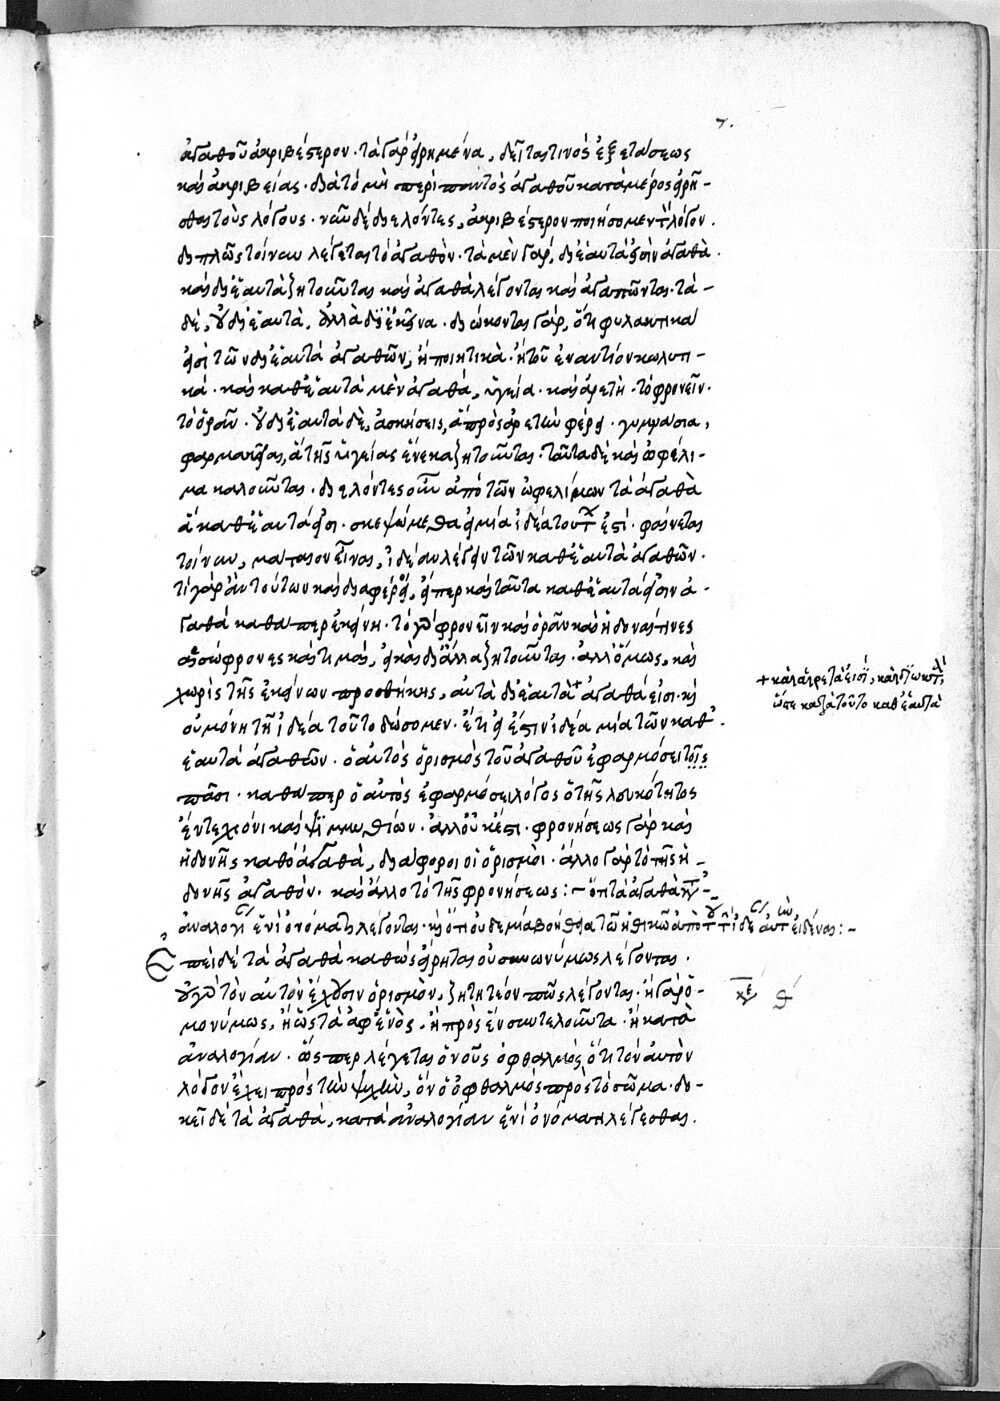 ἀγαθοῦ ἀκριβέστερον· τὰ γὰρ εἰρημένα, δεῖται τινὸς ἐξετάσεως
καὶ ἀκριβείας· διὰ τὸ μὴ περὶ παντὸς ἀγαθοῦ κατὰ μέρος εἰρῆ-
σθαι τοὺς λόγους· νῦν δὲ διελόντες, ἀκριβέστερον ποιήσομεν τὸν λόγον.
διπλῶς τοίνυν λέγεται τὸ ἀγαθόν· τὰ μὲν γὰρ, δι' ἑαυτά εἰσιν ἀγαθὰ.
καὶ δι' ἑαυτὰ ζητοῦνται καὶ ἀγαθὰ λέγονται καὶ ἀγαπῶνται· τὰ-
δὲ, οὐ δι' ἑαυτά, ἀλλὰ δι' ἐκεῖνα· διώκονται γάρ, ὅτι φυλακτικά
εἰσι τῶν δι' ἑαυτὰ ἀγαθῶν, ἢ ποιητικὰ· ἢ τοῦ ἐναντίου κωλυτι-
κά· καὶ καθ' ἑαυτὰ μὲν ἀγαθά, ὑγεία· καὶ ἀρετὴ· τὸ φρονεῖν·
τὸ ὁρᾶν· οὐ δι' ἑαυτὰ δὲ, ἀσκήσεις, ἃ πρὸς ἀρετὴν φέρει· γυμνάσια,
φαρμακεῖαι, ἃ τῆς ὑγείας ἕνεκα ζητοῦνται· ταῦτα δὲ καὶ ὠφέλι-
μα καλοῦνται· διελόντες οὖν ἀπὸ τῶν ὠφελίμων τὰ ἀγαθὰ
ἃ καθ' ἑαυτά εἰσι· σκεψώμεθα εἰ μία ἰδέα τούτων ἐστί· φαίνεται
τοίνυν, μάταιον εἶναι, ἰδέαν λέγειν τῶν καθ' ἑαυτὰ ἀγαθῶν.
τί γὰρ ἂν τούτων καὶ διαφέροι, εἴπερ καὶ ταῦτα καθ' ἑαυτά εἰσιν ἀ-
γαθὰ καθάπερ ἐκείνη· τὸ γὰρ φρονεῖν καὶ ὁρᾶν καὶ ἡδοναί τινες
αἱ σώφρονες καὶ τιμαί, εἰ καὶ δι' ἄλλα ζητοῦνται· ἀλλ' ὅμως, καὶ
χωρὶς τῆς ἐκείνων προσθήκης, αὐτὰ δι' ἑαυτὰ + ἀγαθά εἰσι· καὶ
οὐ μόνη τῇ ἰδέᾳ τοῦτο δώσομεν· ἔτι εἰ ἔστιν ἰδέα μία τῶν καθ'
ἑαυτὰ ἀγαθῶν· ὁ αὐτὸς ὁρισμὸς τοῦ ἀγαθοῦ ἐφαρμόσει τοῖς
πᾶσι· καθάπερ ὁ αὐτὸς ἐφαρμόσει λόγος ὁ τῆς λευκότητος
ἔν τε χιόνι καὶ ψιμμυθίων· ἀλλ' οὐκ ἔστι· φρονήσεως γὰρ καὶ
ἡδονῆς καθὸ ἀγαθά, διάφοροι οἱ ὁρισμοί· ἄλλο γὰρ τὸ τῆς ἡ-
δονῆς ἀγαθόν· καὶ ἄλλο τὸ τῆς φρονήσεως:- ὅτι τὰ ἀγαθὰ κατ'-
ἀναλογίαν ἑνὶ ὀνόματι λέγονται· καὶ ὅτι οὐδεμία βοήθεια τῷ ἠθικῷ ἀπὸ τοῦ τὴν ἰδέαν αὐτῶν εἰδέναι:-
Ἐπεὶ δὲ τὰ ἀγαθὰ καθὼς εἴρηται οὐ συνωνύμως λέγονται.
οὐ γὰρ τὸν αὐτὸν ἔχουσιν ὁρισμὸν, ζητητέον πῶς λέγονται· ἢ γὰρ ὁ-
μονύμως, ἢ ὡς τὰ ἀφ' ἑνὸς· ἢ πρὸς ἓν συντελοῦντα· ἢ κατὰ
ἀναλογίαν· ὥσπερ λέγεται ὁ νοῦς ὀφθαλμός, ὅτι τὸν αὐτὸν
λόγον ἔχει πρὸς τὴν ψυχὴν, ὃν ὁ ὀφθαλμὸς πρὸς τὸ σῶμα· δο-
κεῖ δὲ τὰ ἀγαθά, κατὰ ἀναλογίαν ἑνὶ ὀνόματι λέγεσθαι.